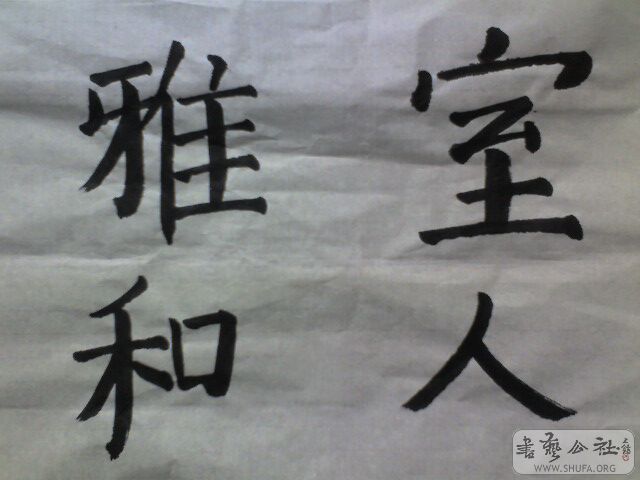 室雅
人和
書藝公社
WWW.SHUFA.ORG